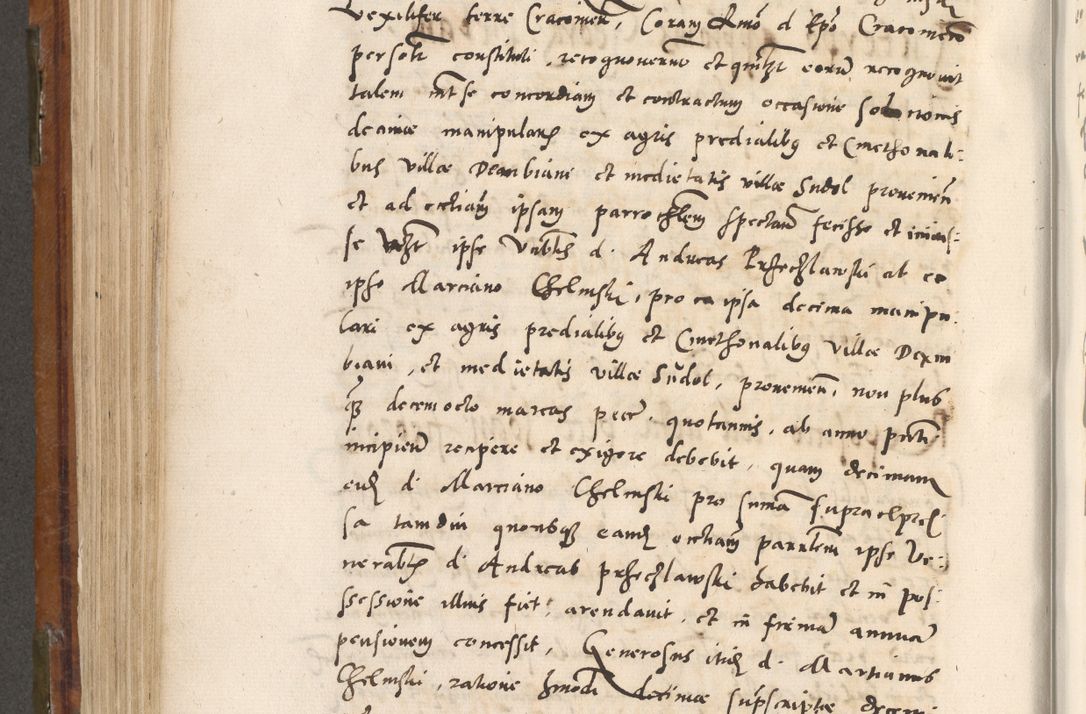 vexilifer terre Cracovien, Coram Admo d Epo Cracovien
personlr constituti, recognoverunt et quilibet eorum recognovit
talem inter se concordiam et contractum occasione solutionis
decimae manipularis ex agris predialibus et Cmethonali:
bus villae Dembiani et medietatis villae Sudol provenien
et ad ecctiam ipsam parrochlem spectan fecisse et inius:
se videlt ipse Vnblis d. Andreas Przeczlawski ab eo
ipso Marciano Chelmski, pro ea ipsa decima manipu
lari ex agris predialibus et Cmethonalibus villae Dem
biani, et medietatis villae Sudol, provenien, non plus
quam decem octo marcas pecc. quotannis, ab anno pnti
incipien recipere et exigere debebit, quam decimam
eid d. Marciano Chelmski pro summa supraexpres:
sa tamdiu quousque eand ecctiam parrlem ipse Ve:
nerablis d. Andreas Przeczlawski habebit et in pos:
sessione illius fiet, arendavit, et in firmam annuam
pensionem concessit, Generosus itid d. Martianus
Chelmski, ratione hmodi decimae suprascriptae decem